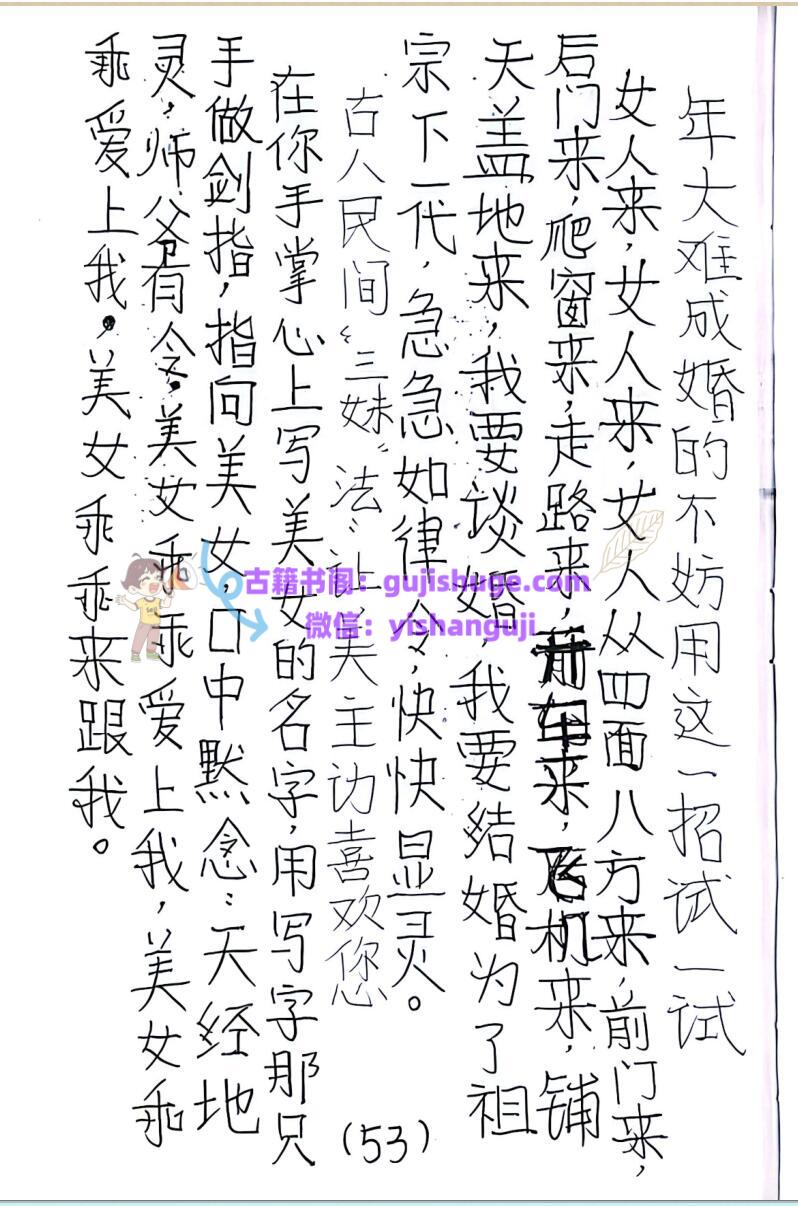 年大难成婚的不妨用这一招试一试
女人来，女人来，女人从四面八方来，前门来，
后门来，爬窗来，走路来，来，飞机来，铺
天盖地来，我要谈婚，我要结婚为了祖
宗下一代，急急如律令，快快显灵。
古人民间“三妹”法：让美主动喜欢您
在你手掌心上写美女的名字，用写字那只
手做剑指，指向美女，口中默念：天经地
灵，师爷有令，美女乖乖爱上我，美女乖
乖爱上我，美女乖乖来跟我。
(53)
古籍书阁：gujishuge.com
微信：yishanguji